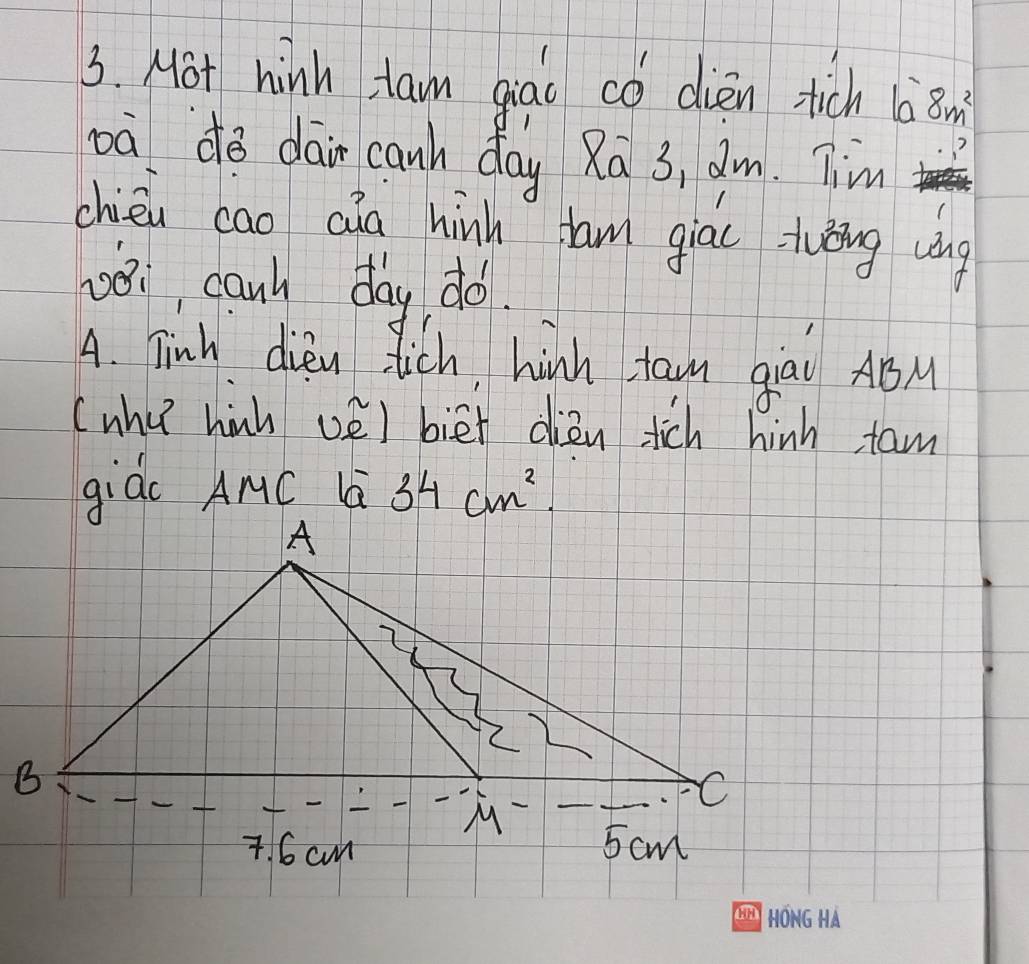 3. Một hình tam giác có diện tích là 8m²
và độ dài cạnh đáy là 3,2m. Tìm
chiều cao của hình tam giác tương ứng
với cạnh đáy đó.
4. Tính diện tích hình tam giác ABM
(như hình vẽ) biết diện tích hình tam
giác AMC là 34 cm².
A
B
M
C
7.6 cm
5cm
HH HỒNG HÀ